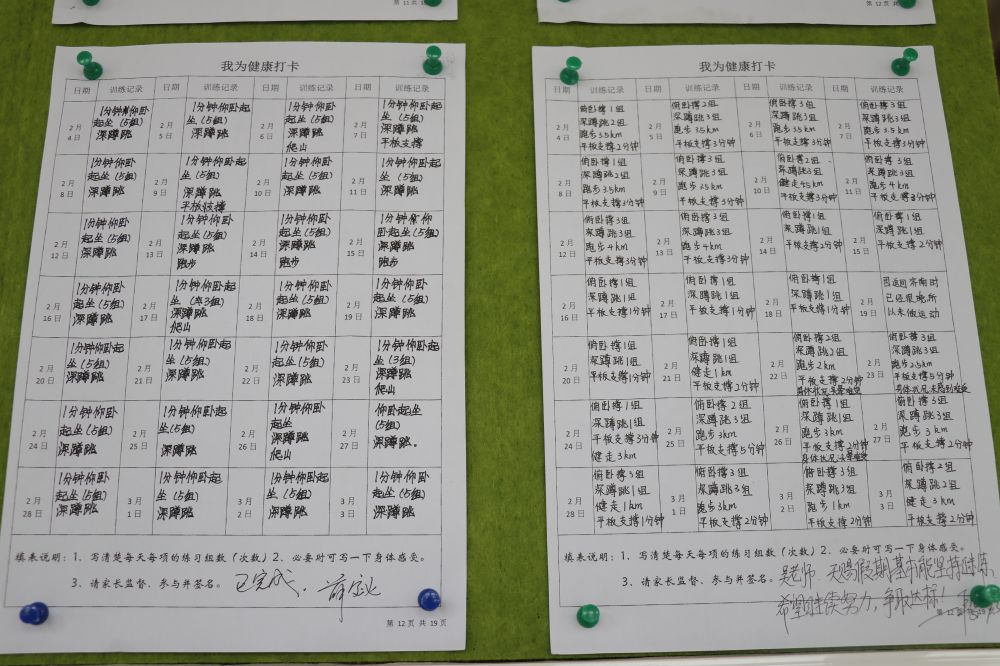 第 11 共 19 页
第 12 共 19 页
我为健康打卡
日期 训练记录 日期 训练记录 日期 训练记录 日期 训练记录
2月4日
1分钟仰卧
起坐(5组)
深蹲跳
2月5日
1分钟仰卧起
坐(5组)
深蹲跳
2月6日
1分钟仰卧
起坐(5组)
深蹲跳
爬山
2月7日
1分钟仰卧起
坐(5组)
深蹲跳
平板支撑
2月8日
1分钟仰卧
起坐(5组)
深蹲跳
2月9日
1分钟仰卧起
坐(5组)
深蹲跳
平板支撑
2月10日
1分钟仰卧
起坐(5组)
深蹲跳
2月11日
1分钟仰卧起
坐(5组)
深蹲跳
2月12日
1分钟仰卧
起坐(5组)
深蹲跳
2月13日
1分钟仰卧起
坐(5组)
深蹲跳
跑步
2月14日
1分钟仰卧
起坐(5组)
深蹲跳
跑步
2月15日
1分钟仰
卧起坐(5组)
深蹲跳
跑步
2月16日
1分钟仰卧
起坐(5组)
深蹲跳
2月17日
1分钟仰卧起
坐(3组)
深蹲跳
爬山
2月18日
1分钟仰卧
起坐(5组)
深蹲跳
2月19日
1分钟仰卧
起坐(5组)
深蹲跳
2月20日
1分钟仰卧起
坐(5组)
深蹲跳
2月21日
1分钟仰卧
起坐(5组)
深蹲跳
2月22日
1分钟仰卧
起坐(5组)
深蹲跳
2月23日
1分钟仰卧起
坐(3组)
深蹲跳
爬山
2月24日
1分钟仰卧
起坐(5组)
深蹲跳
2月25日
1分钟仰卧起
坐(5组)
深蹲跳
2月26日
1分钟仰卧
起坐
深蹲跳
爬山
2月27日
仰卧起坐
(5组)
深蹲跳。
2月28日
1分钟仰卧
起坐(5组)
深蹲跳
3月1日
1分钟仰卧起
坐(5组)
深蹲跳
3月2日
1分钟仰卧
起坐(5组)
深蹲跳
3月3日
1分钟仰卧
起坐(5组)
深蹲跳
填表说明:1、写清楚每天每项的练习组数(次数)2、必要时可写一下身体感受。
3、请家长监督、参与并签名。 已完成.
第 12 页 共 19 页
我为健康打卡
日期 训练记录 日期 训练记录 日期 训练记录 日期 训练记录
2月4日
俯卧撑1组
深蹲跳2组
跑步3.5km
平板支撑2分钟
2月5日
俯卧撑2组
深蹲跳3组
跑步3.5km
平板支撑3分钟
2月6日
俯卧撑3组
深蹲跳3组
跑步3.5km
平板支撑3分钟
2月7日
俯卧撑3组
深蹲跳3组
跑步3.5km
平板支撑3分钟
2月8日
俯卧撑1组
深蹲跳2组
跑步3.5km
平板支撑3分钟
2月9日
俯卧撑3组
深蹲跳3组
跑步3.5km
平板支撑3分钟
2月10日
俯卧撑2组
深蹲跳3组
健走4.5km
平板支撑3分钟
2月11日
俯卧撑3组
深蹲跳3组
跑步4km
平板支撑3分钟
2月12日
俯卧撑3组
深蹲跳3组
跑步4km
平板支撑3分钟
2月13日
俯卧撑3组
深蹲跳3组
跑步4km
平板支撑3分钟
2月14日
俯卧撑3组
深蹲跳1组
平板支撑2分钟
2月15日
俯卧撑1组
深蹲跳1组
平板支撑2分钟
2月16日
俯卧撑1组
深蹲跳1组
平板支撑1分钟
2月17日
俯卧撑1组
深蹲跳1组
平板支撑1分钟
2月18日
俯卧撑1组
深蹲跳1组
平板支撑1分钟
2月19日
因返回济南时
已很晚,所
以未做运动
2月20日
俯卧撑1组
深蹲跳1组
平板支撑1分钟
2月21日
俯卧撑1组
深蹲跳1组
健走1km
平板支撑2分钟
2月22日
俯卧撑2组
深蹲跳2组
跑步2km
平板支撑2分钟
2月23日
俯卧撑3组
深蹲跳3组
跑步2.5km
平板支撑5分钟
2月24日
俯卧撑1组
深蹲跳1组
平板支撑3分钟
健走3km
2月25日
俯卧撑2组
深蹲跳3组
跑步3km
平板支撑2分钟
2月26日
俯卧撑1组
深蹲跳1组
跑步3km
平板支撑2分钟
2月27日
俯卧撑3组
深蹲跳3组
跑步3km
平板支撑2分钟
2月28日
俯卧撑3组
深蹲跳1组
健走1km
平板支撑1分钟
3月1日
俯卧撑3组
深蹲跳3组
跑步3km
平板支撑2分钟
3月2日
俯卧撑3组
深蹲跳3组
跑步1km
平板支撑2分钟
3月3日
俯卧撑2组
深蹲跳3组
健走3km
平板支撑2分钟
填表说明:1、写清楚每天每项的练习组数(次数)2、必要时可写一下身体感受。
3、请家长监督、参与并签名。 吴老师、天赐假期基本能坚持锻炼,
希望继续努力,争取达标!